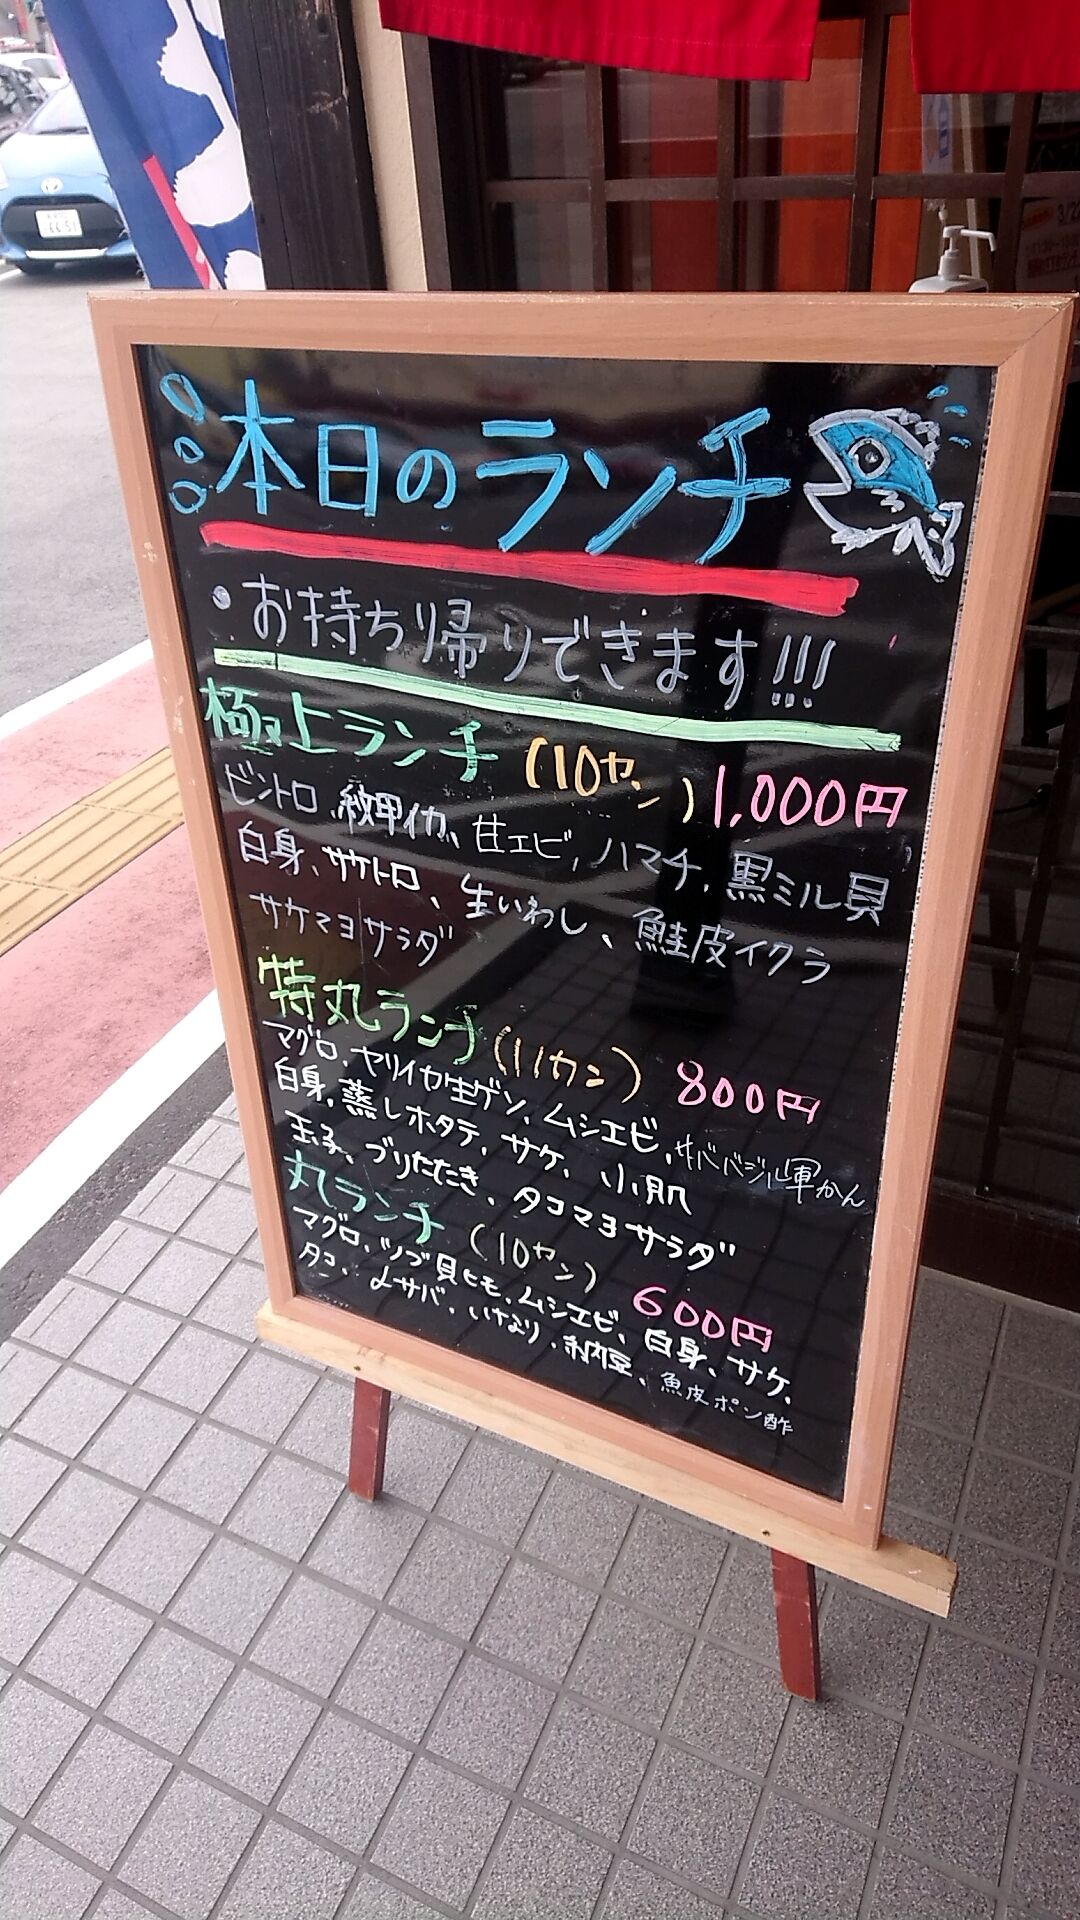 本日のランチ
・お持ち帰りできます!!!
極上ランチ (10カン) 1,000円
ビントロ、紋甲イカ、甘エビ、ハマチ、黒ミル貝
白身、サケトロ、生いわし、鮭皮イクラ
サケマヨサラダ
特丸ランチ (11カン) 800円
マグロ、ヤリイカ生ゲソ、ムシエビ、サババジル軍かん
白身、蒸しホタテ、サケ、小肌
玉子、ブリたたき、タコマヨサラダ
丸ランチ (10カン) 600円
マグロ、ツブ貝ヒモ、ムシエビ、白身、サケ、
タコ、〆サバ、いなり、納豆、魚皮ポン酢
3/2